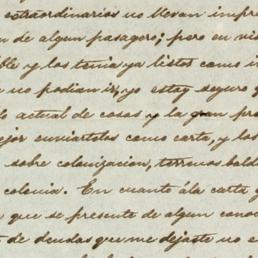 extraordinarios no llevan impre
n de algun pasagero; pero en vis
ble y los tenia ya listos como i
no podian ir, yo estoy seguro q
lo actual de cosas y la gran pro
ejor enviartelos como carta, y los
sobre colonizacion, terrenos bald
colonia. En cuanto á la carta q
que se presente de algun conoc
de deudas que me dejaste no e